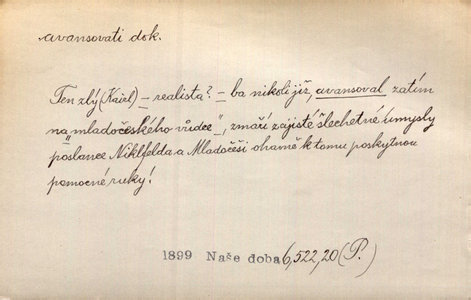 avansovati dok.
Ten zlý (Kaizl) – realista? – ba nikoli již, avansoval zatím
na „mladočeského vůdce", zmaří zajisté šlechetné úmysly
poslance Niklfelda a Mladočeši ohamě k tomu poskytnou
pomocné ruky!
1899 Naše doba 6,522,20 (P.)